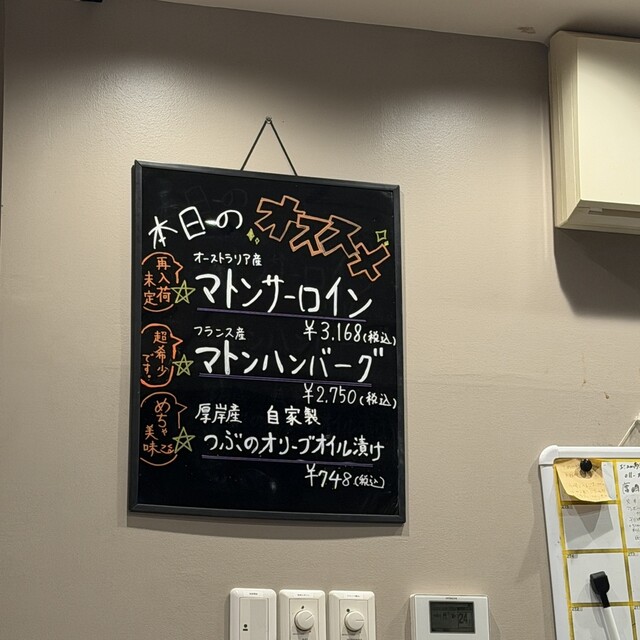 本日のオススメ
再入荷
未定
オーストラリア産
☆マトンサーロイン
¥3,168(税込)
超希少
です!
フランス産
☆マトンハンバーグ
¥2,750(税込)
めちゃ
美味
厚岸産 自家製
☆つぶのオリーブオイル漬け
¥748(税込)